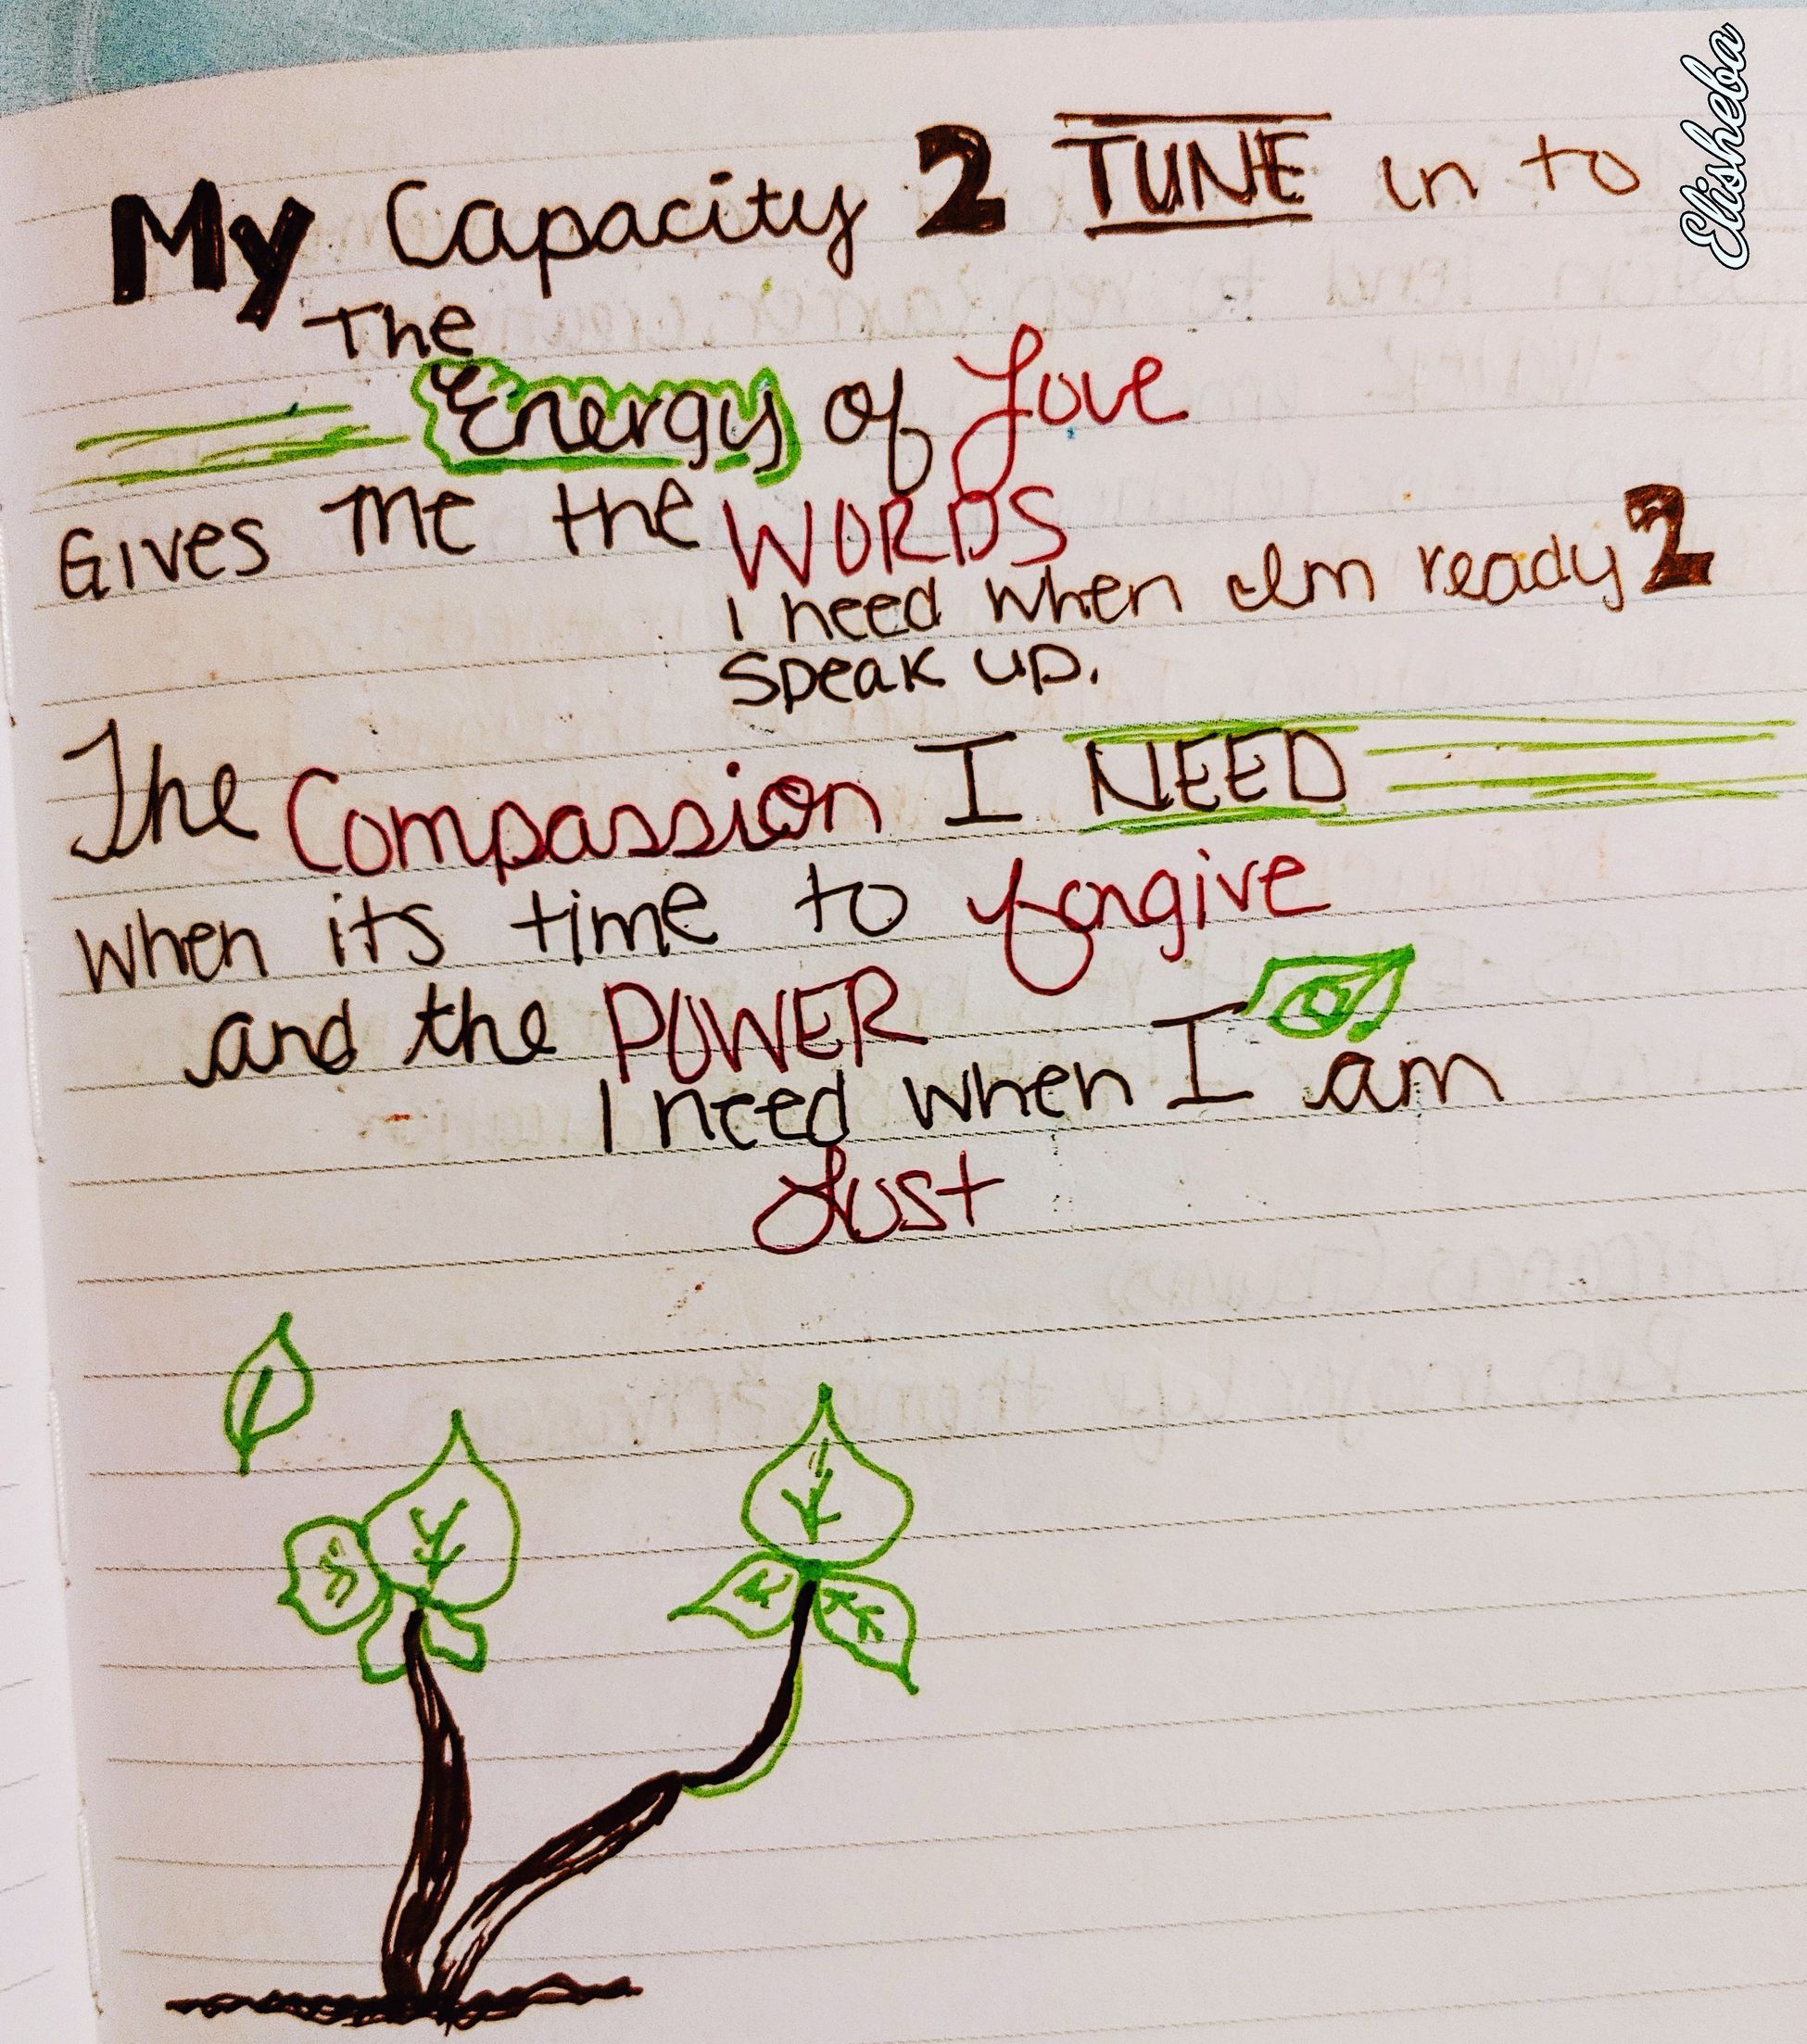 My Capacity 2 TUNE in to
The
Energy of Love
Gives me the WORDS
I need when Im ready 2
speak up.
The Compassion I NEED
when its time to forgive
and the POWER
I need when I am
Lost
Elisheba